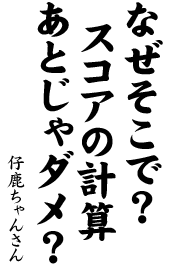 なぜそこで？
スコアの計算
あとじゃダメ？
仔鹿ちゃんさん